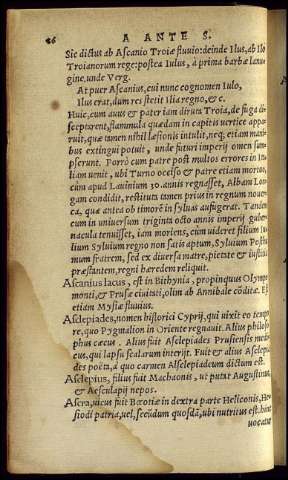 26 A ANTE S.
Sic dictus ab Ascanio Troiæ fluuio: deinde Ilus, ab Ilo
Troianorum rege: postea Iulus, à prima barbæ lanu-
gine, unde Verg.
At puer Ascanius, cui nunc cognomen Iulo,
Ilus erat, dum res stetit Ilia regno, &c.
Huic, cum auus & pater iam diruta Troia, de fuga di-
sceptarent, flammula quædam in capitis uertice appa-
ruit, quæ tamen nihil læsionis intulit, neq; etiam mani-
bus extingui potuit, unde futuri imperij omen sum-
pserunt. Porrò cum patre post multos errores in Ita-
liam uenit, ubi Turno occiso & patre etiam mortuo,
cum apud Lauinium 30. annis regnasset, Albam Lon
gam condidit, restituta tamen prius in regnum nouer-
ca, quæ antea ob timorē in syluas aufugerat. Tandem
cum in uniuersum triginta octo annis imperij guber-
nacula tenuisset, iam moriens, cum uideret filium Iu-
lium Syluium regno non satis aptum, Syluium Postu
mum fratrem, sed ex diuersa matre, pietate & iustitia
præstantem, regni hæredem reliquit.
Ascanius lacus, est in Bithynia, propinquus Olympo
monti, & Prusæ ciuitati, olim ab Annibale cōditæ. Est
etiam Mysiæ fluuius.
Asclepiades, nomen historici Cyprij, qui uixit eo tempo
re, quo Pygmalion in Oriente regnauit. Alius philoso
phus cæcus. Alius fuit Asclepiades Prusiensis medi-
cus, qui lapsu scalarum interijt. Fuit & alius Asclepia
des poëta, à quo carmen Asclepiadeum dictum est.
Asclepius, filius fuit Machaonis, ut putat Augustinus,
& Aesculapij nepos.
Ascra, uicus fuit Bœotiæ in dextra parte Heliconis, He
siodi patria, uel, secūdum quosdā, ubi nutritus est. hinc
uocatur